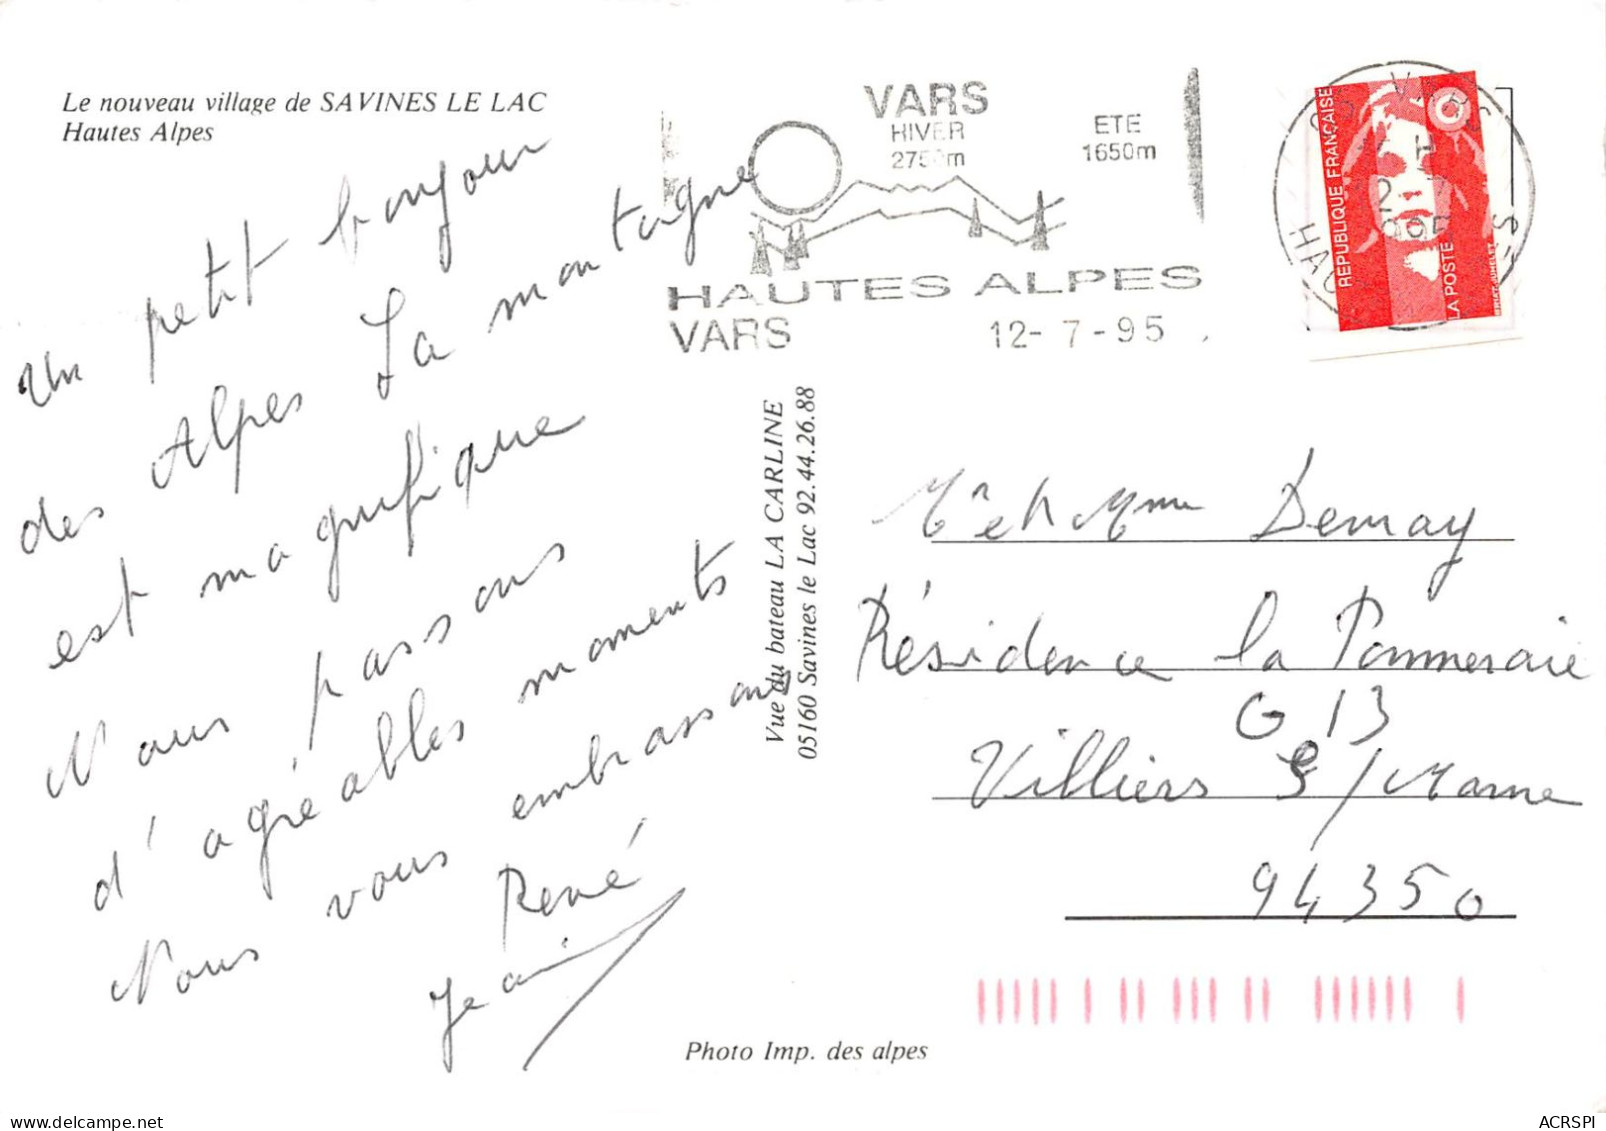 Le nouveau village de SAVINES LE LAC
Hautes Alpes
VARS
HIVER
2750m
ETE
1650m
HAUTES ALPES
VARS
12-7-95
REPUBLIQUE FRANÇAISE
LA POSTE
un petit bonjour
des Alpes La montagne
est magnifique
Nous passons
d'agréables moments
Nous vous embrassons
René
Vue du bateau LA CARLINE
05160 Savines le Lac 92.44.26.88
Mr et Mme Demay
Résidence la Pommeraie
G 13
Villiers S/Marne
94350
Photo Imp. des alpes
ACRSPI